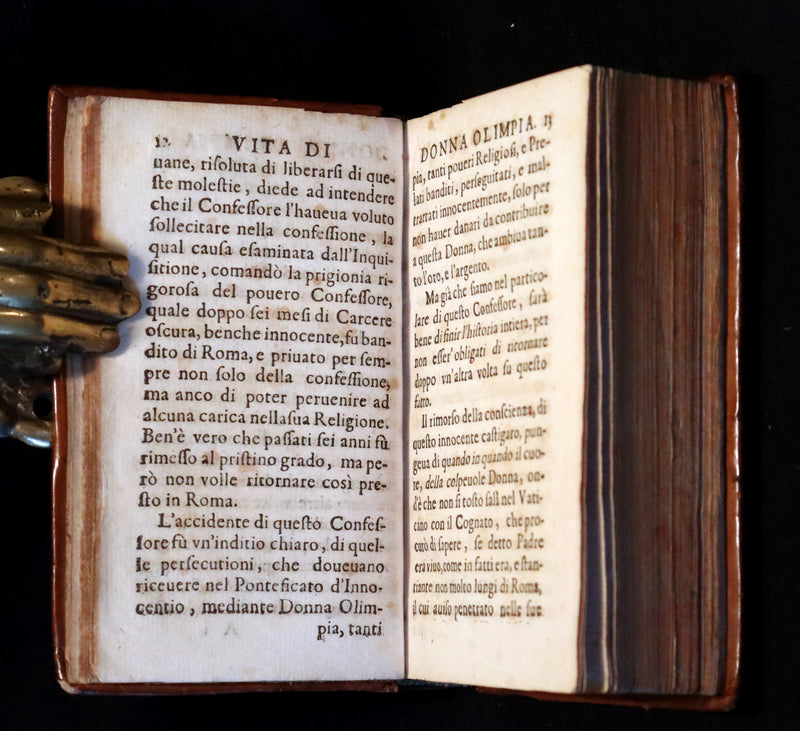 12 VITA DI
uane, riſoluta di liberarſi di que-
ſte moleſtie, diede ad intendere
che il Confeſſore l'haueua voluto
ſollecitare nella confeſſione, la
qual cauſa eſaminata dall'Inqui-
ſitione, comandò la prigionia ri-
goroſa del pouero Confeſſore,
quale doppo ſei meſi di Carcere
oſcura, benche innocente, fù ban-
dito di Roma, e priuato per ſem-
pre non ſolo della confeſſione,
ma anco di poter peruenire ad
alcuna carica nella ſua Religione.
Ben'è vero che paſſati ſei anni fù
rimeſſo al priſtino grado, ma pe-
rò non volle ritornare così pre-
ſto in Roma.
L'accidente di queſto Confeſ-
ſore fù vn'inditio chiaro, di quel-
le perſecutioni, che doueuano
riceuere nel Ponteficato d'Inno-
centio, mediante Donna Olim-
pia, tanti
DONNA OLIMPIA. 13
pia, tanti poueri Religioſi, e Pre-
lati banditi, perſeguitati, e mal-
trattati innocentemente, ſolo per
non hauer danari da contribuire
a queſta Donna, che ambiua tan-
to l'oro, e l'argento.
Ma già che ſiamo nel partico-
lare di queſto Confeſſore, ſarà
bene di finir l'hiſtoria intiera, per
non eſſer' obligati di ritornare
doppo vn'altra volta ſu queſto
fatto.
Il rimorſo della conſcienza, di
queſto innocente caſtigato, pun-
geua di quando in quando al cuo-
re, della colpeuole Donna, on-
d'è che non ſi toſto ſalì nel Vati-
cano con il Cognato, che pro-
curò di ſapere, ſe detto Padre
era viuo, come in fatti era, e ſtan-
tiante non molto lungi di Roma,
il cui auiſo penetrato nelle ſue